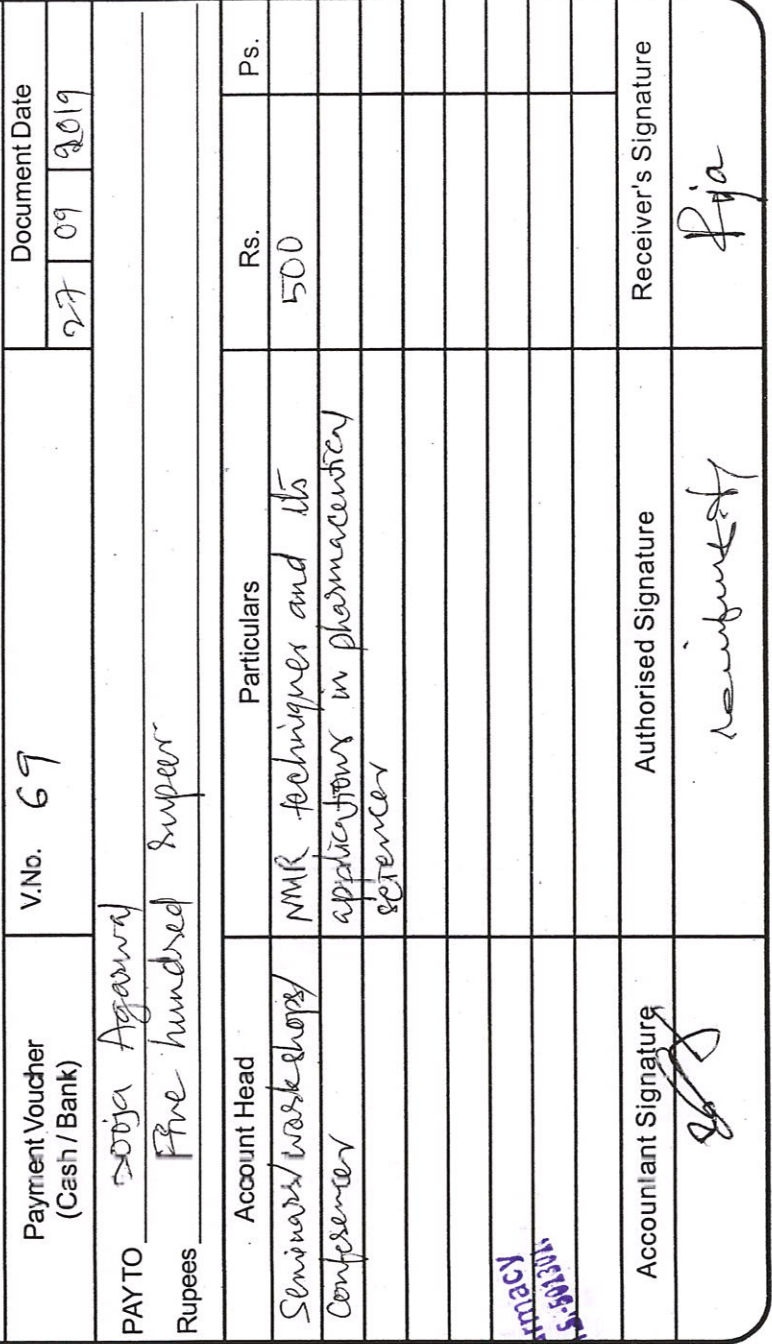 Payment Voucher
(Cash / Bank)
V.No. 69
Document Date
27 09 2019
PAY TO Agarwal
Rupees Five hundred rupees
Account Head
Particulars
Rs.
Ps.
Seminars/workshops/
Conferences
NMR techniques and its
applications in pharmaceutical
sciences
500
Accountant Signature
Authorised Signature
Receiver's Signature